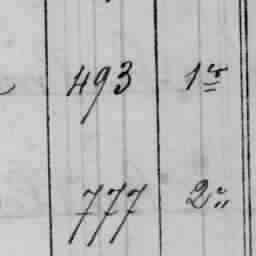 493 1º
777 2º